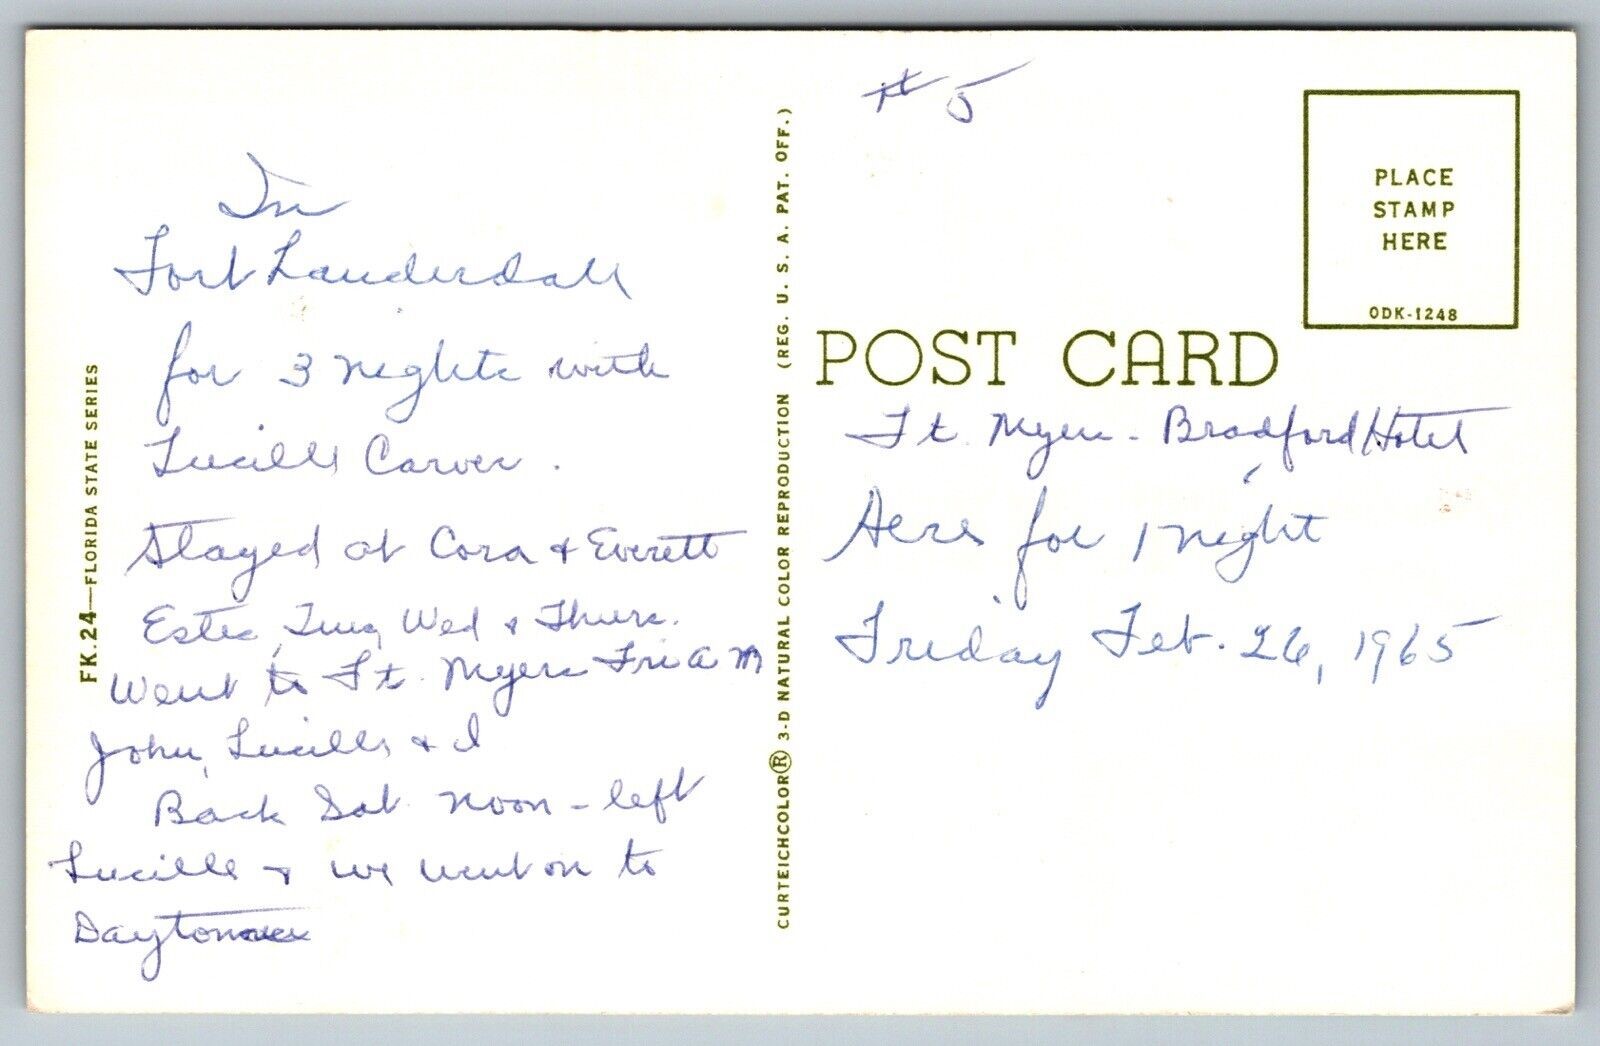 In
Fort Lauderdale
for 3 nights with
Lucille Carver.
Stayed at Cora & Everett
Estes, Tues, Wed & Thurs.
Went to Ft. Myers Fri A M
John, Lucille & I
Back Sat noon - left
Lucille & we went on to
Daytona
FK.24—FLORIDA STATE SERIES
CURTEICHCOLOR® 3-D NATURAL COLOR REPRODUCTION (REG. U. S. A. PAT. OFF.)
# 5
PLACE
STAMP
HERE
ODK-1248
POST CARD
Ft. Myers - Bradford Hotel
Here for 1 night
Friday Feb. 26, 1965